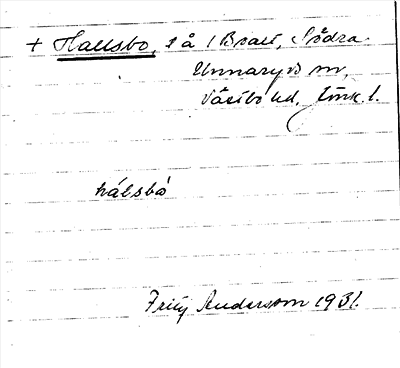 + Hallsbo, s å i Brall, Södra
Unnaryds sn,
Västbo hd, Jönk. l.
hálsbó
Fritz Andersson 1931.